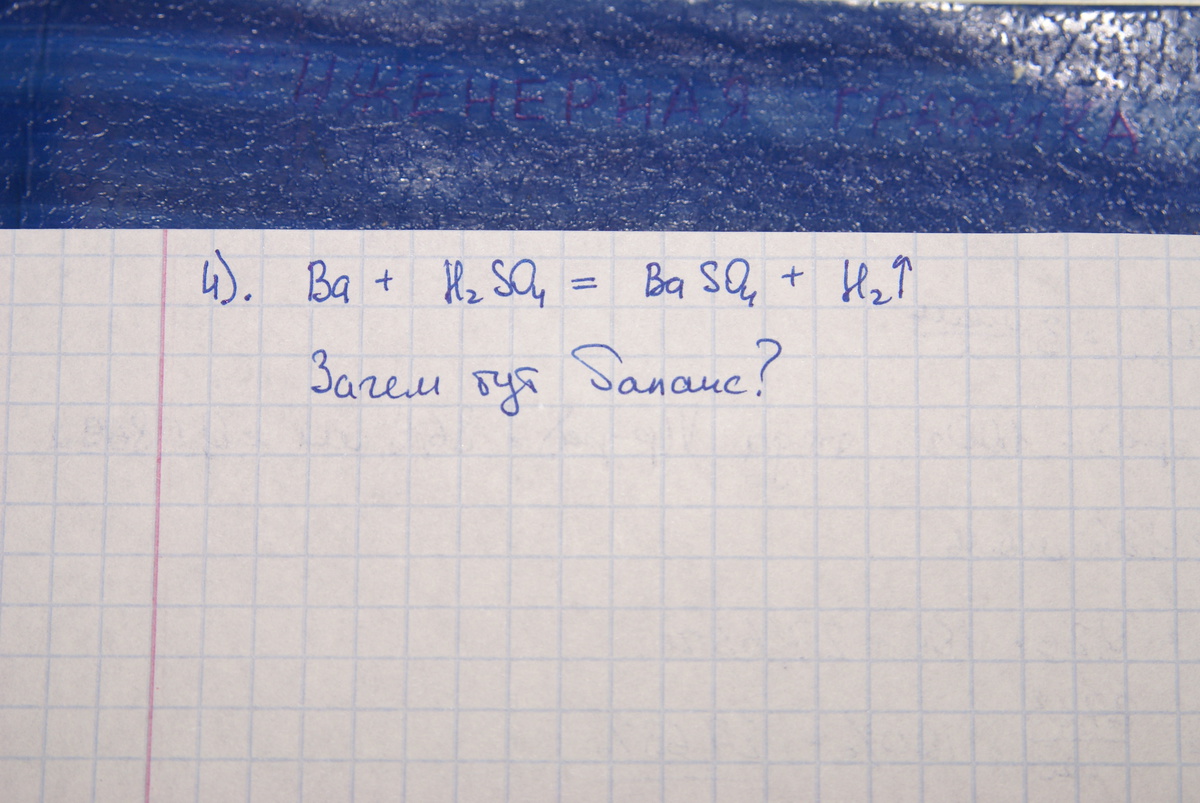 ИНЖЕНЕРНАЯ ГРАФИКА
4). Ba + H₂SO₄ = BaSO₄ + H₂↑
Зачем тут баланс?